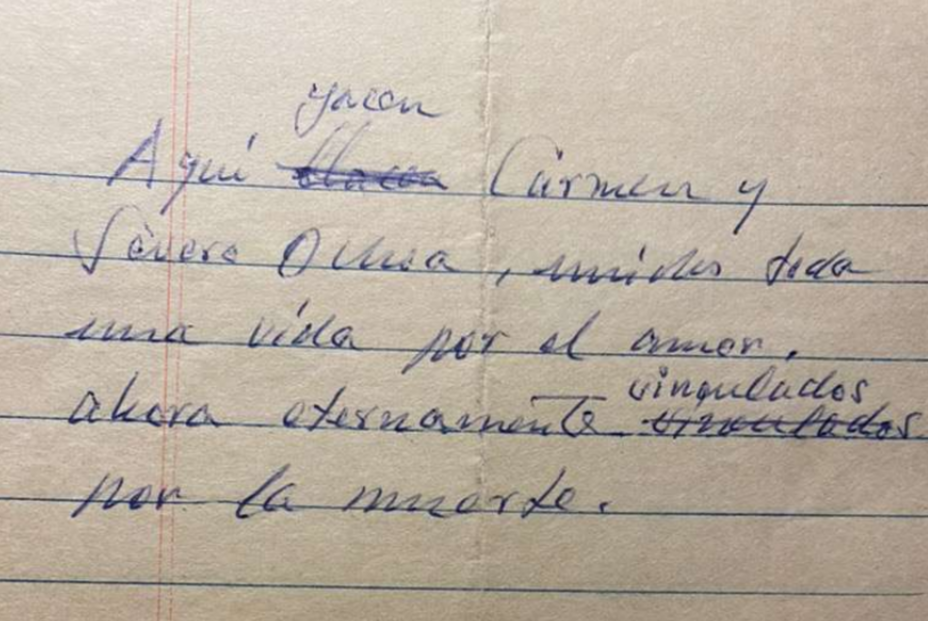 yacen
Aquí Carmen y
Severo Ochoa, unidos toda
una vida por el amor.
vinculados
ahora eternamente vinculados
por la muerte.